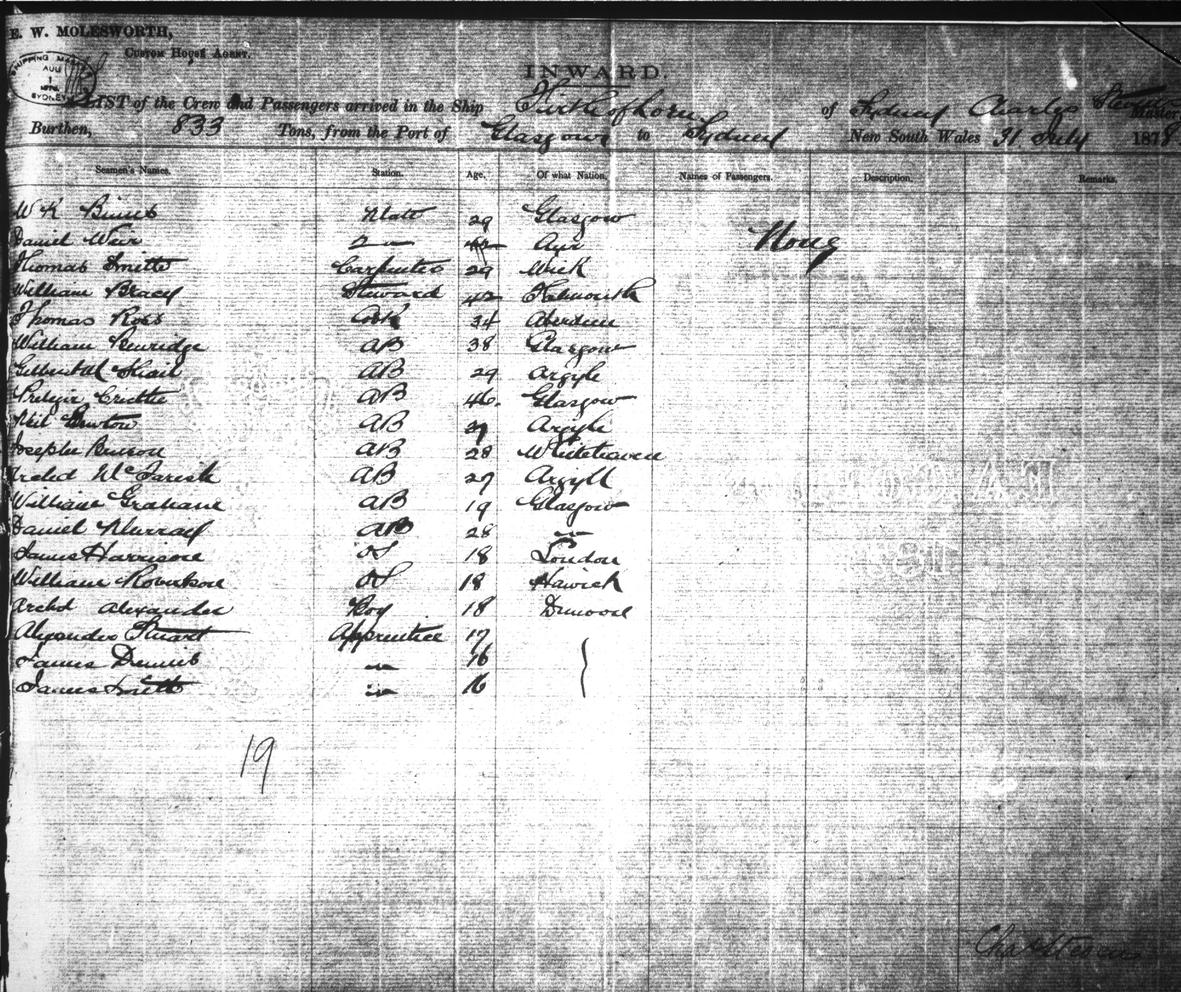 E. W. MOLESWORTH,
CUSTOM HOUSE AGENT.
SHIPPING MASTER
AUG
1
1878
SYDNEY
INWARD.
LIST of the Crew and Passengers arrived in the Ship of Sydney Charles Master
Burthen, 833 Tons, from the Port of Glasgow to Sydney New South Wales 31 July 1878
Seamen's Names. Station. Age, Of what Nation, Names of Passengers. Description. Remarks.
W K Mate 29 Glasgow
Daniel Weir 2 " Ayr None
Thomas Smith Carpenter 29 Wick
William Bracy Steward 42 Falmouth
Thomas Ross Cook 34 Aberdeen
William AB 38 Glasgow
AB 29 Argyle
AB 46. Glasgow
Neil AB Argyle
Joseph AB 28 Whitehaven
Archd AB 27 Argyll
William Graham AB 19 Glasgow
Daniel Murray AB 28 "
James Harrison OS 18 London
William Robertson OS 18 Hawick
Archd Alexander Boy 18 Dunoon
Alexander Stuart Apprentice 17
James Dennis " 16
James Smith " 16
19